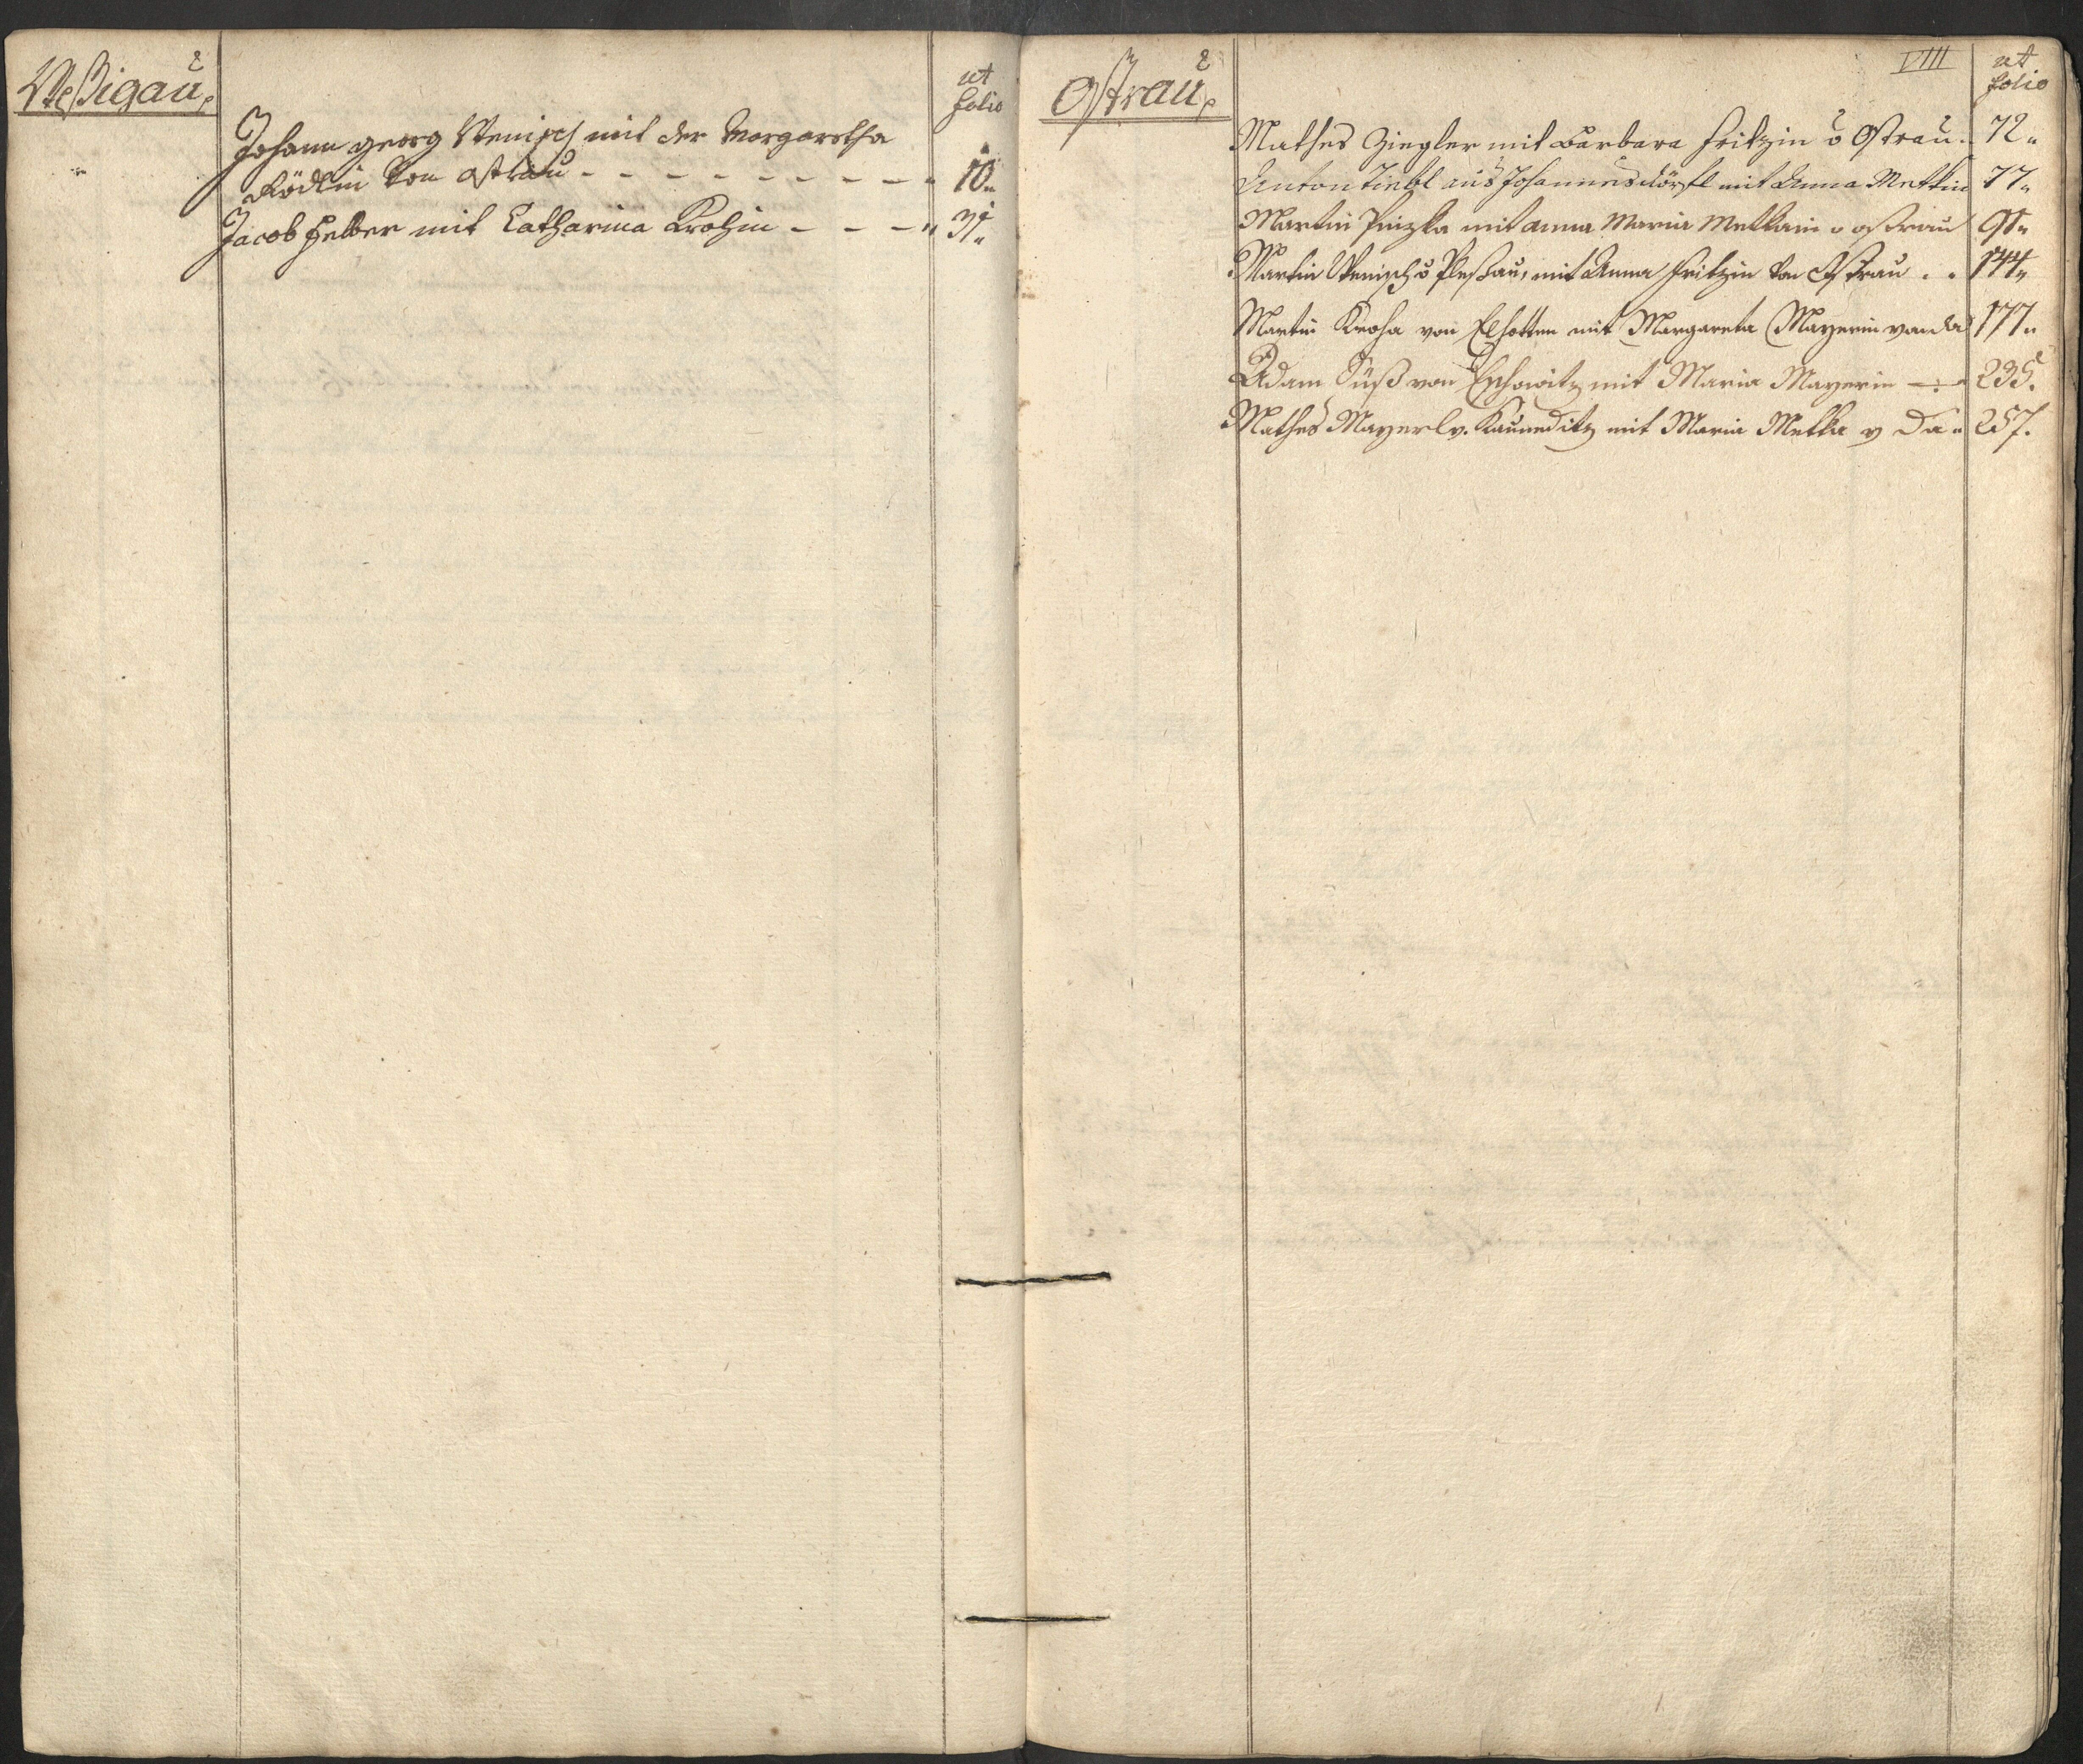 Weßigau,
ut
folio
Johann georg Wenisch mit der Margaretha
Rödlin von ostrau - - - - - - - - - 10.
Jacob Helber mit Catharina Krohin - - - 31.
Ostrau,
VIII
ut
folio
Mathes Ziegler mit Barbara Fritzin v Ostrau. 72.
Anton Tiebl aus Johannesdörfl mit Anna Metkin 77.
Martin mit anna Maria Metkain v ostrau 91.
Martin Wenisch v Pleßau, mit Anna Fritzin von Ostrau . . 144.
Martin Kroha von Elhotten mit Margareta Mayerin von da 177.
Adam Süß von mit Maria Mayerin 235.
Mathes Mayerl v. mit Maria Metka v da. 257.